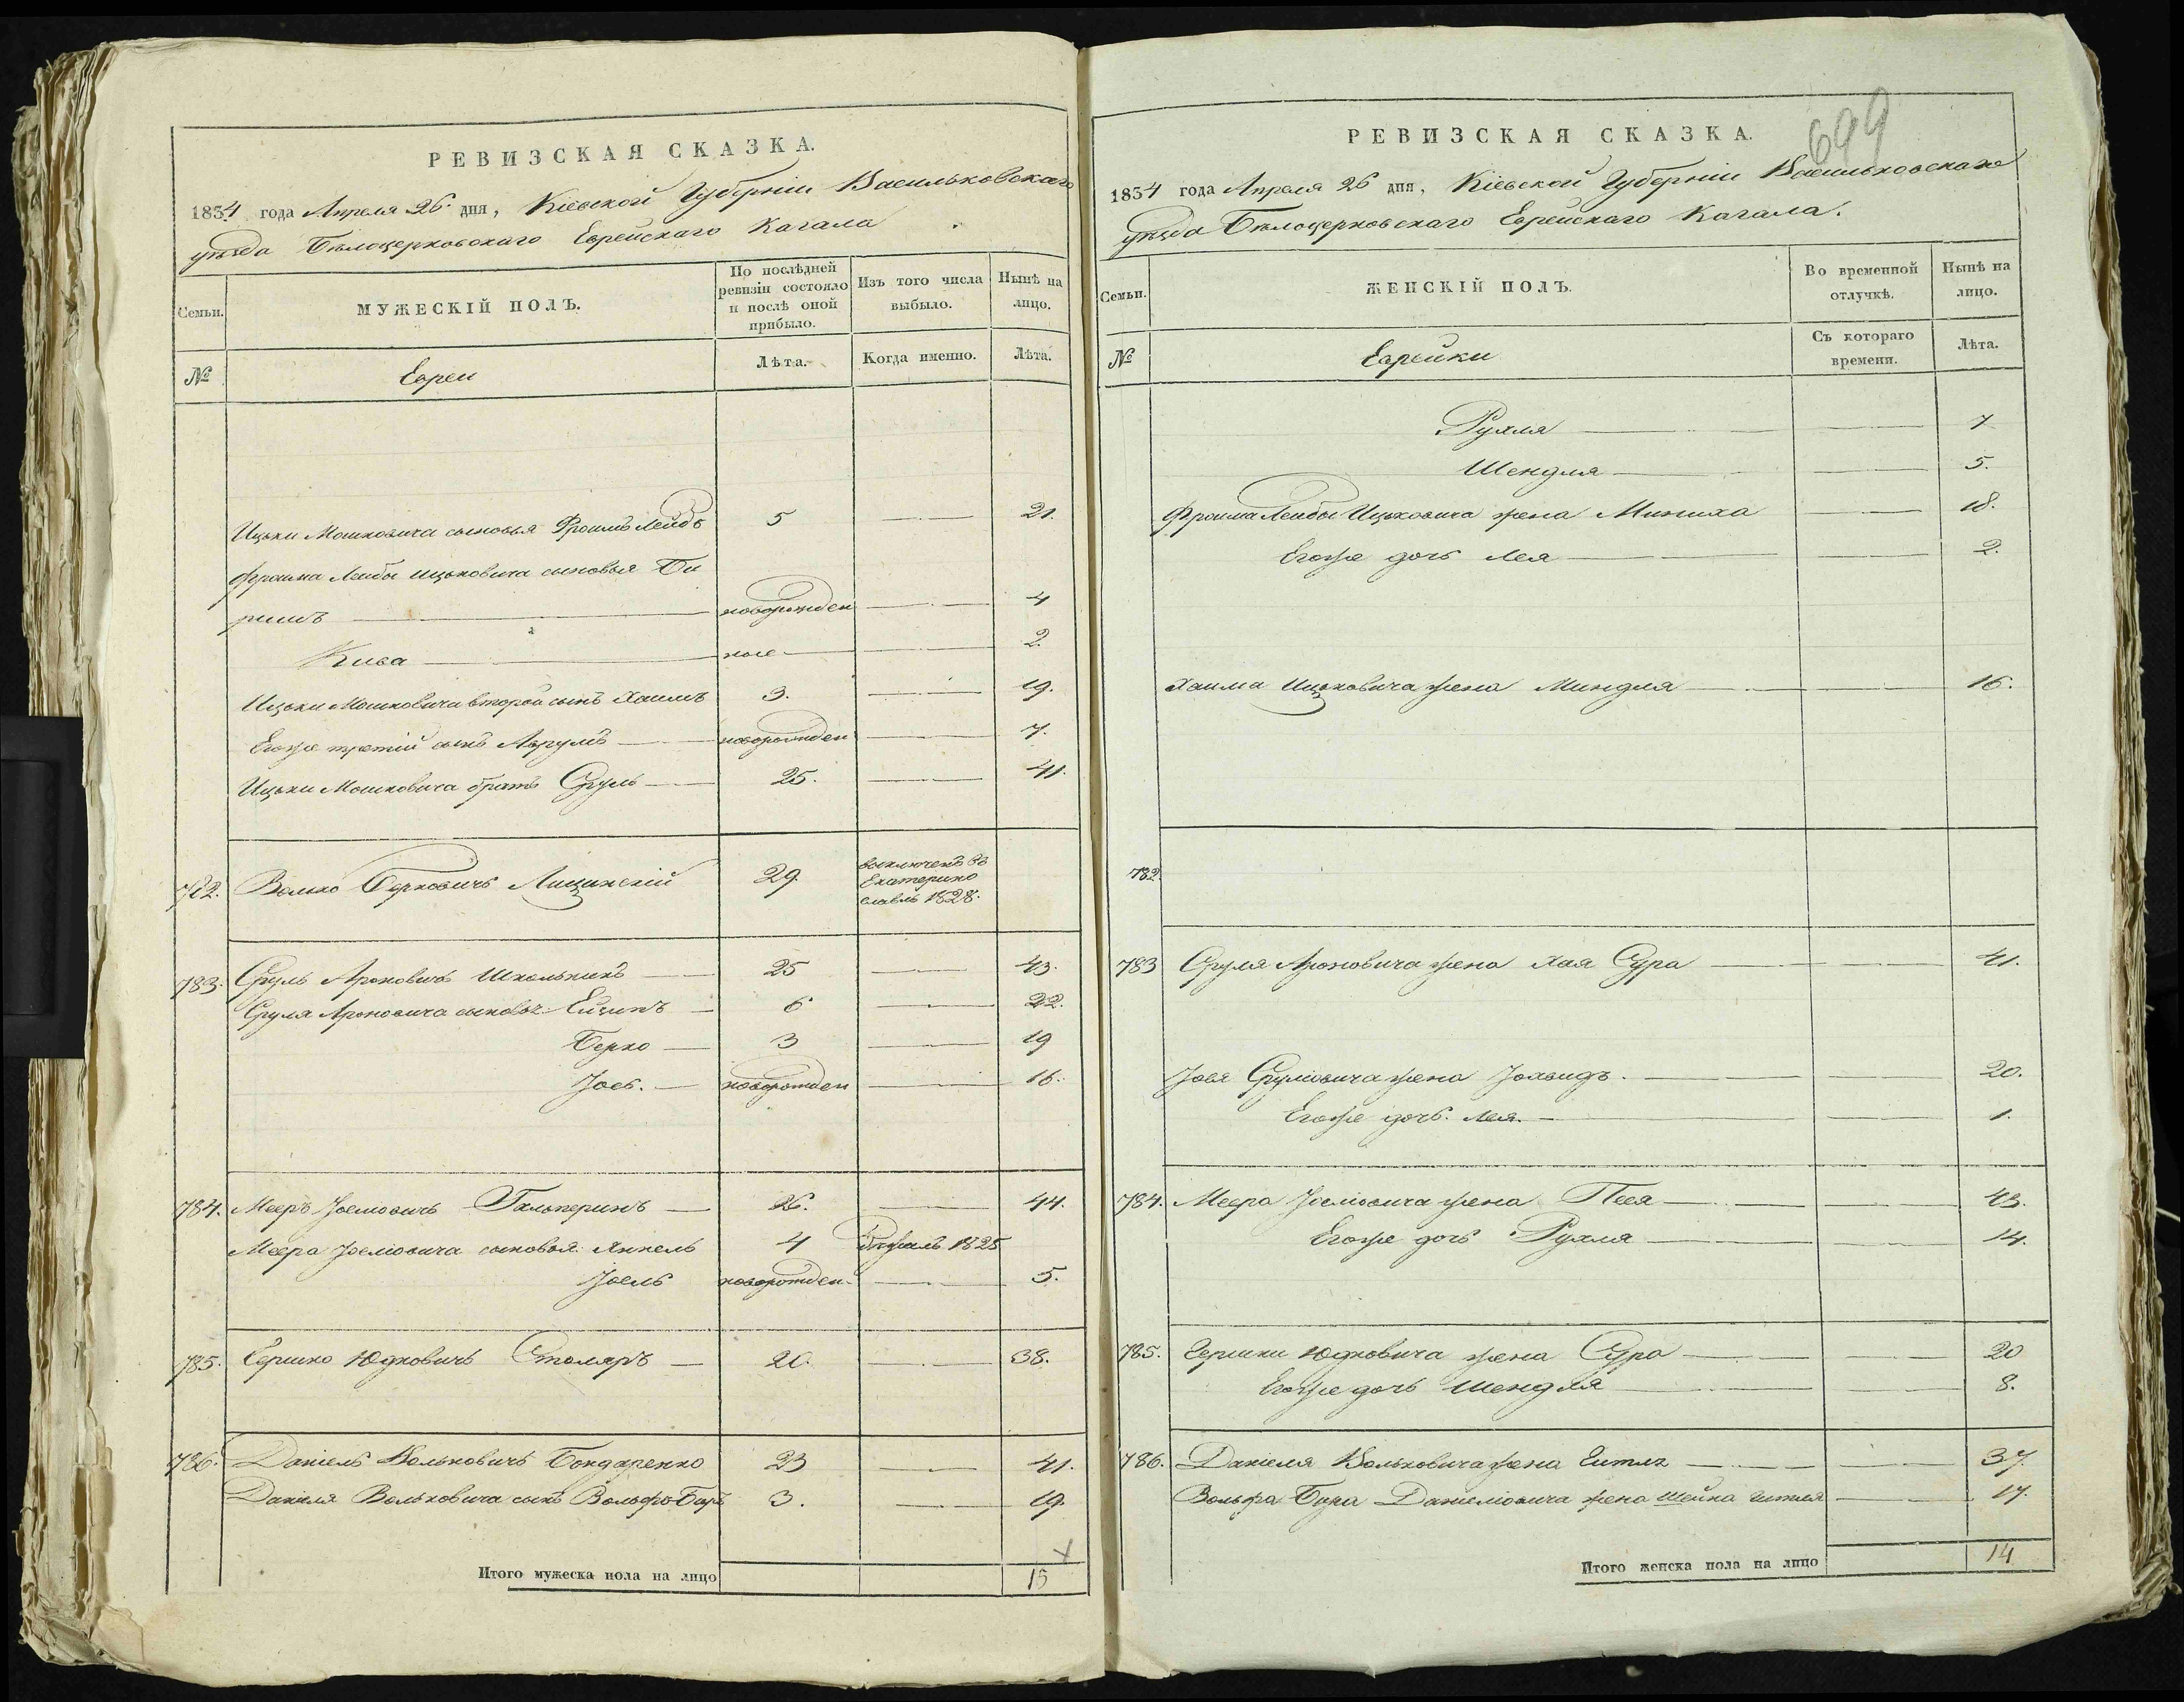 РЕВИЗСКАЯ СКАЗКА.
1834 года Апреля 26 дня, Кіевской Губерніи Васильковскаго
уѣзда Бѣлоцерковскаго Еврейскаго Кагала
Семьи.
МУЖЕСКІЙ ПОЛЪ.
По послѣдней ревизіи состояло и послѣ оной прибыло.
Изъ того числа выбыло.
Нынѣ на лицо.
№
Евреи
Лѣта.
Когда именно.
Лѣта.
Ицьки Мошковича сыновья Фроимъ Лейбъ 5 21.
Фроима Лейбы Ицьковича сыновья Би
ришъ новорожден 4
Кива ные 2.
Ицьки Мошковича второй сынъ Хаимъ 3. 19.
Егоже третій сынъ Аврумъ новорожден 7.
Ицьки Мошковича братъ Сруль 25. 41.
782. Волько Берковичъ Лищинскій 29. выключенъ въ
Екатерино
славль 1828.
783. Сруль Ароновичъ Школьникъ 25 43.
Сруля Ароновича сыновья: Ейзикъ 6 22.
Берко 3 19
Іось. новорожден 16.
784. Мееръ Іосліовичъ Гальперинъ 26. 44.
Меера Іосліовича сыновья: Янкель 4 бѣжалъ 1825
Іосль новорожден. 5.
785. Гершко Юдковичъ Столяръ 20. 38.
786. Даніель Вольковичъ Бондаренко 23 41.
Даніеля Вольковича сынъ Вольфъ Беръ 3. 19.
Итого мужеска пола на лицо 15
699
РЕВИЗСКАЯ СКАЗКА.
1834 года Апреля 26 дня, Кіевской Губерніи Васильковскаго
уѣзда Бѣлоцерковскаго Еврейскаго Кагала.
Семьи.
ЖЕНСКІЙ ПОЛЪ.
Во временной отлучкѣ.
Нынѣ на лицо.
№
Еврейки
Съ котораго времени.
Лѣта.
Рухля 7
Шендля 5.
Фроима Лейбы Ицьковича жена Миниха 18.
Егоже дочь Лея 2.
Хаима Ицьковича жена Миндля 16.
782.
783 Сруля Ароновича жена Хая Сура 41.
Іося Сруліовича жена Іохвидъ. 20.
Егоже дочь. Лея. 1.
784. Меера Іосліовича жена Песя 43.
Егоже дочь Рухля 14.
785. Гершки Юдковича жена Сура 20
Егоже дочь Шендля 8.
786. Даніеля Вольковича жена Гитля 37.
Вольфа Бера Даніеліовича жена Шейна Гитля 17.
Итого женска пола на лицо 14